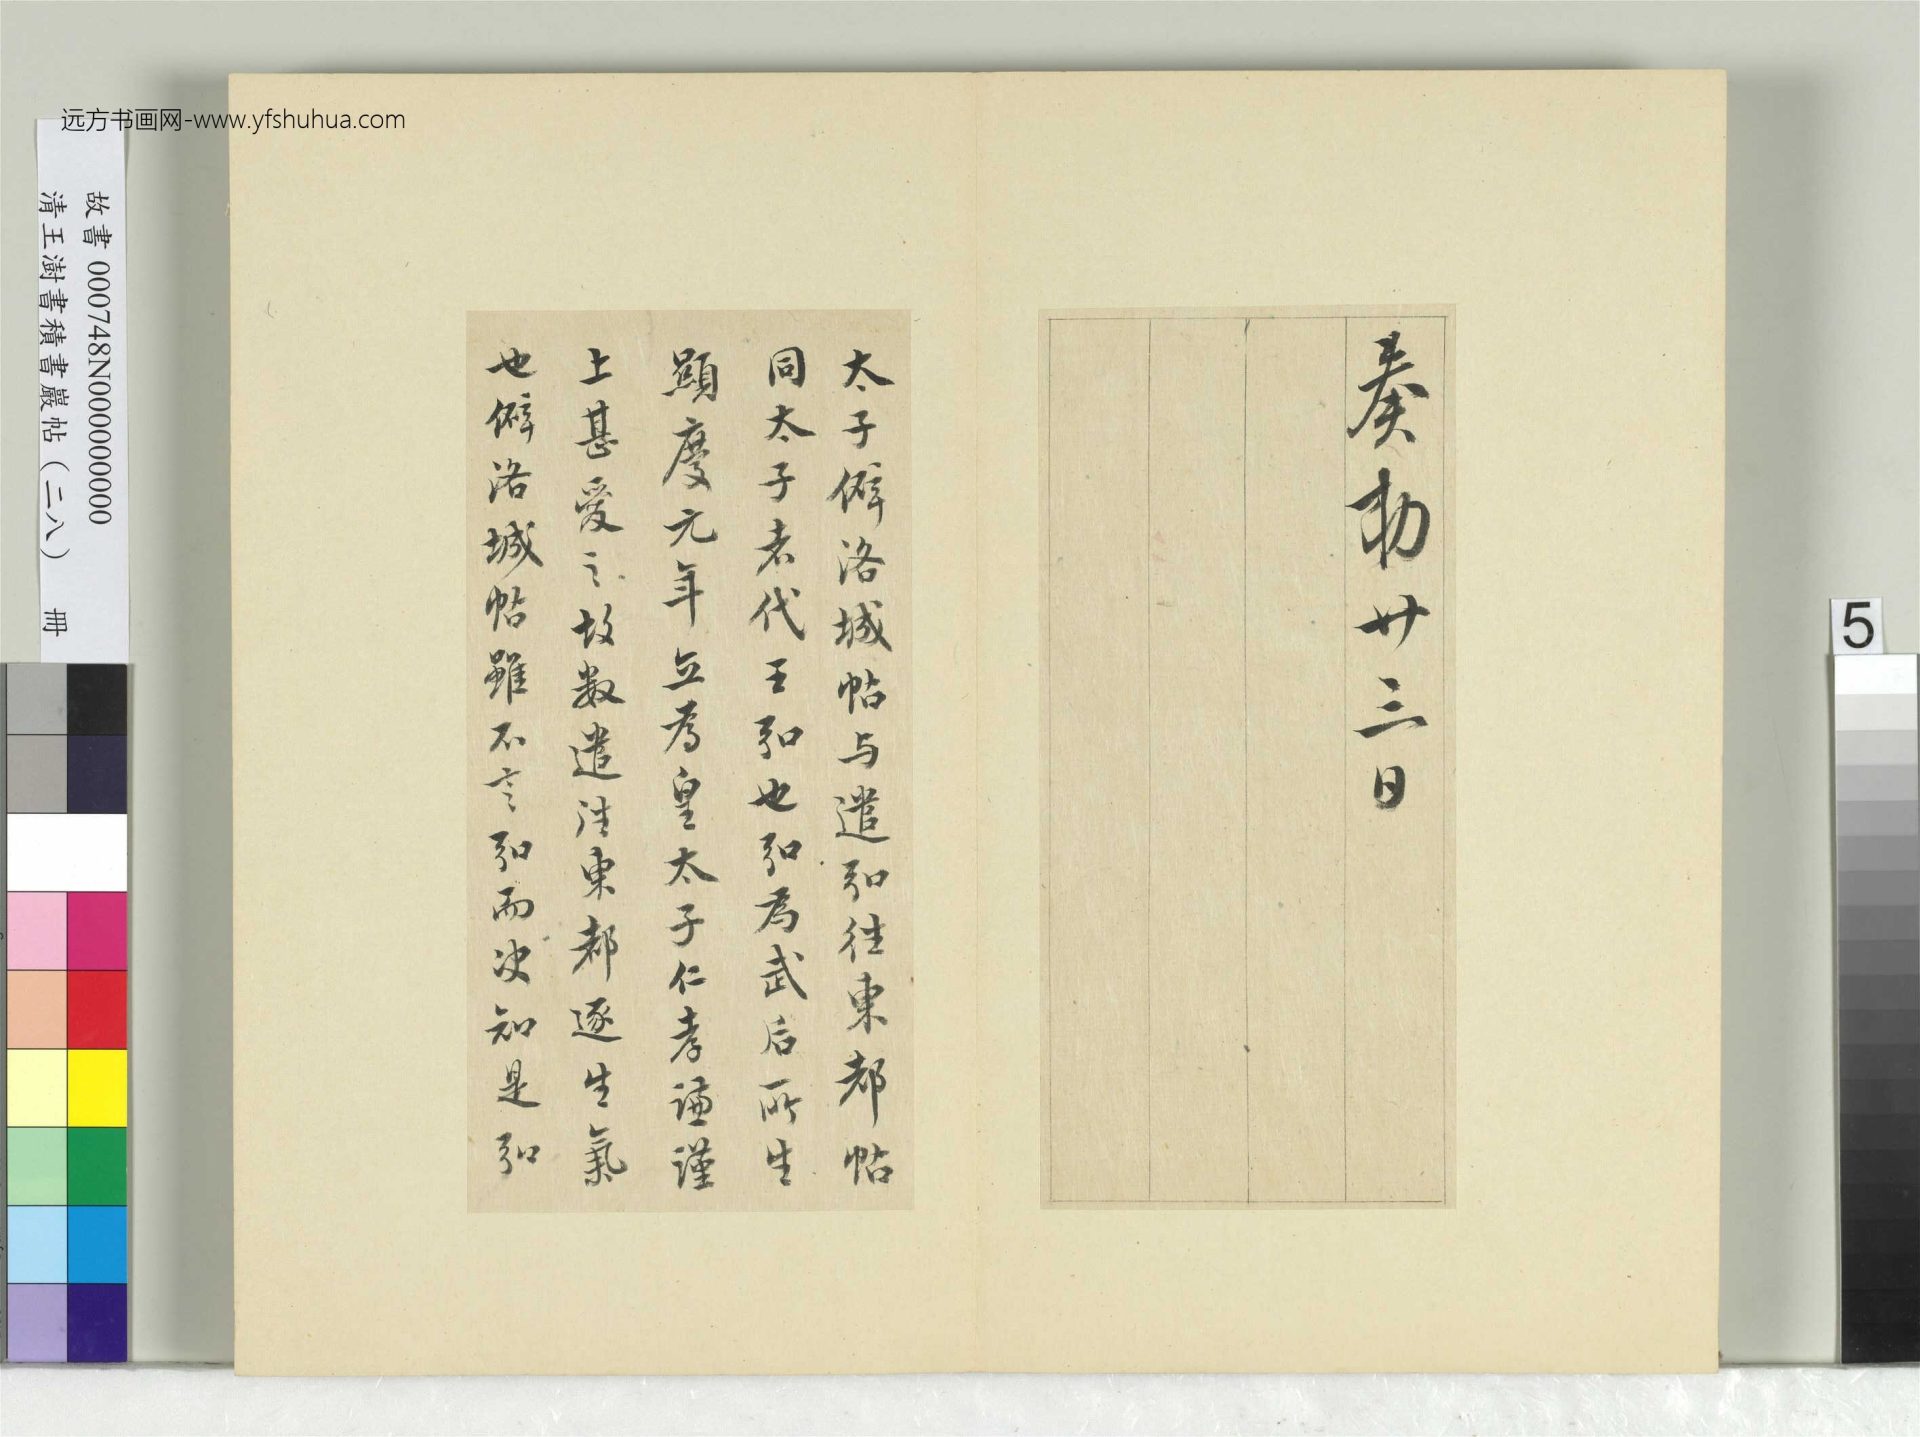 奏勅廿三日
太子僻洛城帖与遣弘往東都帖
同太子者代王弘也弘為武后所生
顯慶元年立為皇太子仁孝謙謹
上甚愛之故数遣往東都逐生氣
也僻洛城帖雖不言弘而决知是弘
远方书画网-www.yfshuhua.com
故書 000748N000000000
清王澍書積書巖帖(二八) 冊
5